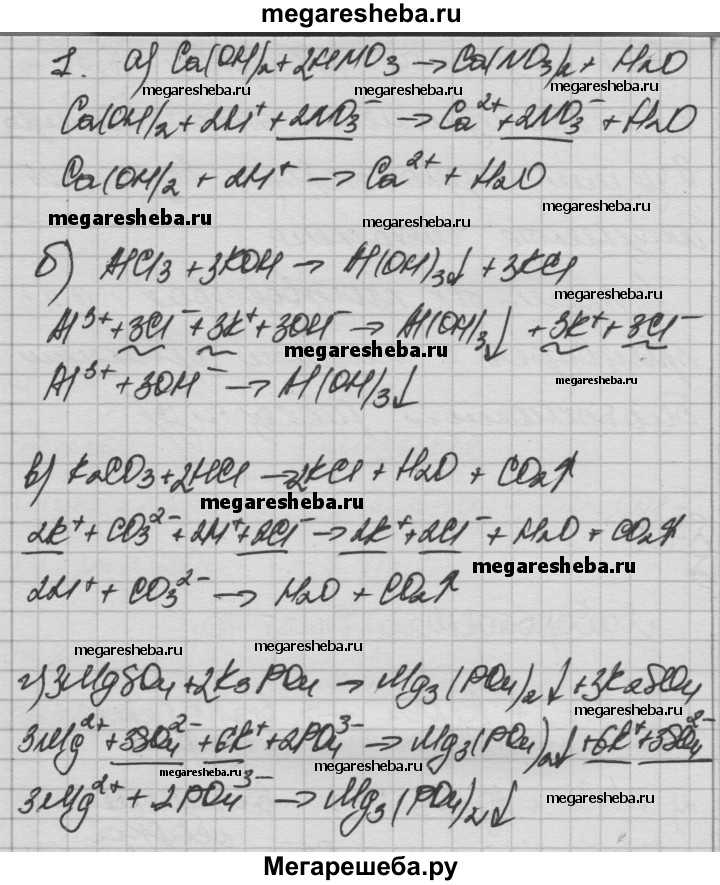 megaresheba.ru
1. а) Ca(OH)2 + 2HNO3 → Ca(NO3)2 + H2O
megaresheba.ru megaresheba.ru megaresheba.ru
Ca(OH)2 + 2H⁺ + 2NO3⁻ → Ca²⁺ + 2NO3⁻ + H2O
Ca(OH)2 + 2H⁺ → Ca²⁺ + H2O
megaresheba.ru megaresheba.ru megaresheba.ru
б) AlCl3 + 3KOH → Al(OH)3↓ + 3KCl
megaresheba.ru
Al³⁺ + 3Cl⁻ + 3K⁺ + 3OH⁻ → Al(OH)3↓ + 3K⁺ + 3Cl⁻
megaresheba.ru
Al³⁺ + 3OH⁻ → Al(OH)3↓
megaresheba.ru
в) K2CO3 + 2HCl → 2KCl + H2O + CO2↑
megaresheba.ru
2K⁺ + CO3²⁻ + 2H⁺ + 2Cl⁻ → 2K⁺ + 2Cl⁻ + H2O + CO2↑
megaresheba.ru
2H⁺ + CO3²⁻ → H2O + CO2↑
megaresheba.ru megaresheba.ru
г) 3MgSO4 + 2K3PO4 → Mg3(PO4)2↓ + 3K2SO4
megaresheba.ru
3Mg²⁺ + 3SO4²⁻ + 6K⁺ + 2PO4³⁻ → Mg3(PO4)2↓ + 6K⁺ + 3SO4²⁻
megaresheba.ru megaresheba.ru
3Mg²⁺ + 2PO4³⁻ → Mg3(PO4)2↓
megaresheba.ru
Мегарешеба.ру